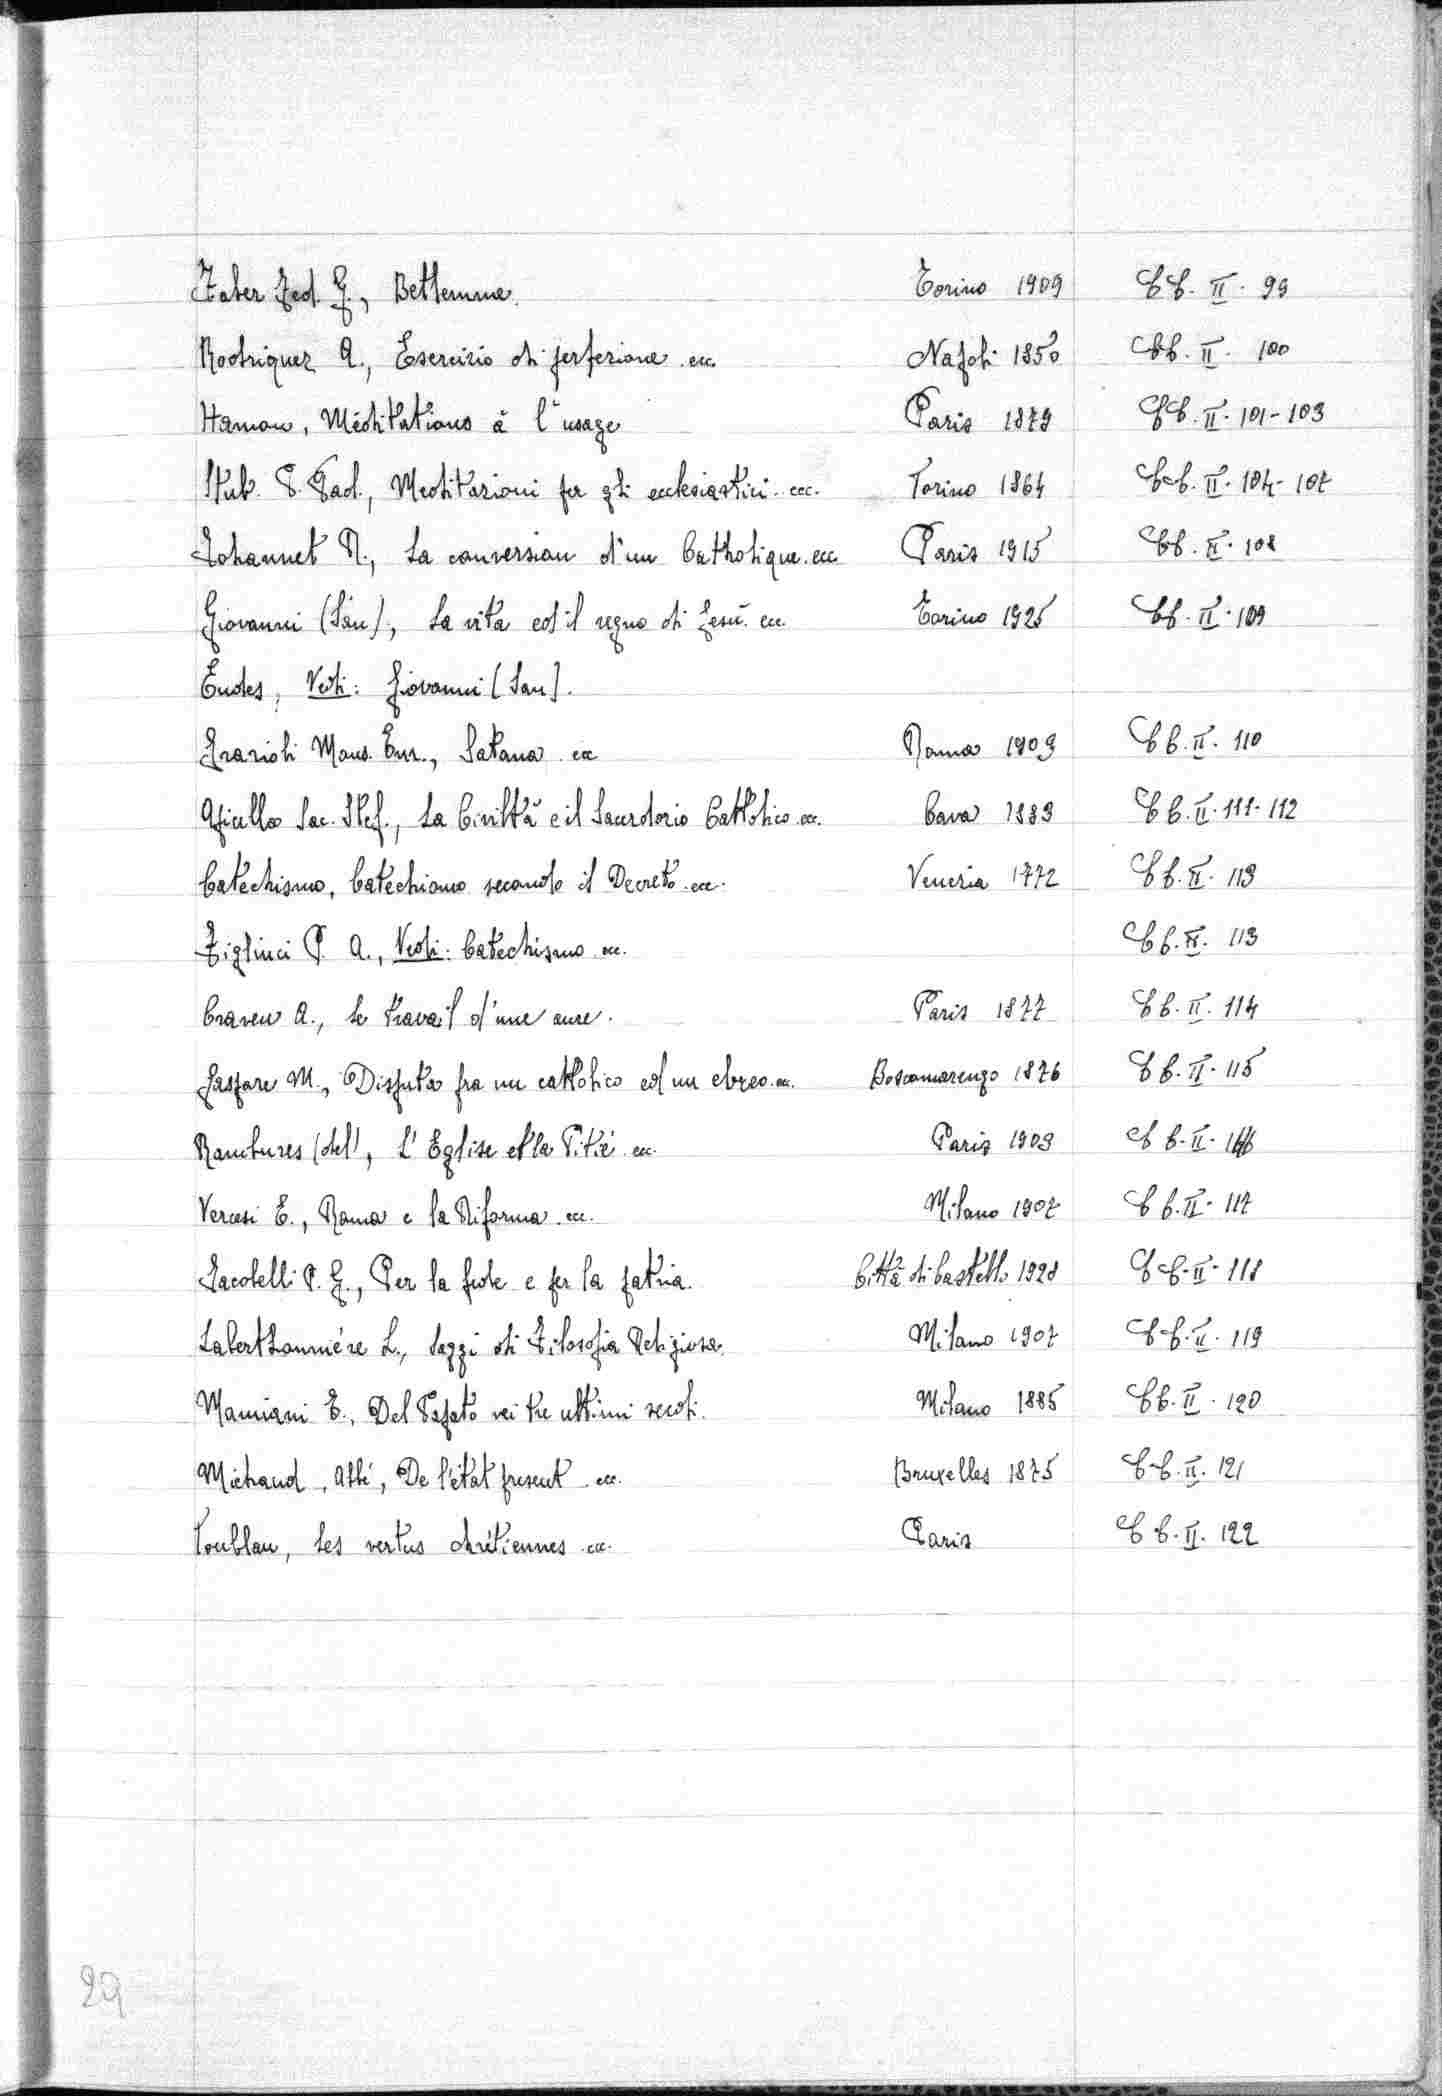 Faber Fed. G., Betlemme. Torino 1909 C C. II. 99
Rodriguez A., Esercizio di perfezione ecc. Napoli 1850 C C. II. 100
Hamon, Méditations à l'usage Paris 1879 C C. II. 101-103
Stub. P. Pad., Meditazioni per gli ecclesiastici. ecc. Torino 1864 C C. II. 104-107
Johannet R., La conversion d'un Catholique. ecc. Paris 1915 C C. II. 108
Giovanni (San), La vita ed il regno di Gesù. ecc. Torino 1925 C C. II. 109
Eudes, Vedi: Giovanni (San).
Grazioli Mons. Enr., Satana ecc Roma 1909 C C. II. 110
Apicella Sac. Stef., La Civiltà e il Sacerdozio Cattolico ecc. Cava 1883 C C. II. 111-112
Catechismo, Catechismo secondo il Decreto ecc. Venezia 1772 C C. II. 113
P. A., Vedi: Catechismo ecc. C C. II. 113
Craven A., Le travail d'une âme. Paris 1877 C C. II. 114
Gaspare M., Disputa fra un cattolico ed un ebreo. ecc. Boscomarengo 1876 C C. II. 115
(de), L'Eglise et la Pitié ecc. Paris 1909 C C. II. 116
Vercesi E., Roma e la Riforma ecc. Milano 1907 C C. II. 117
Jacobelli P. G., Per la fede e per la patria. Città di Castello 1928 C C. II. 118
Laberthonnière L., Saggi di Filosofia Religiosa. Milano 1907 C C. II. 119
Mamiani T., Del Papato nei tre ultimi secoli. Milano 1885 C C. II. 120
Michaud, Abbé, De l'état présent ecc. Bruxelles 1875 C C. II. 121
Toublan, Les vertus chrétiennes ecc. Paris C C. II. 122
29